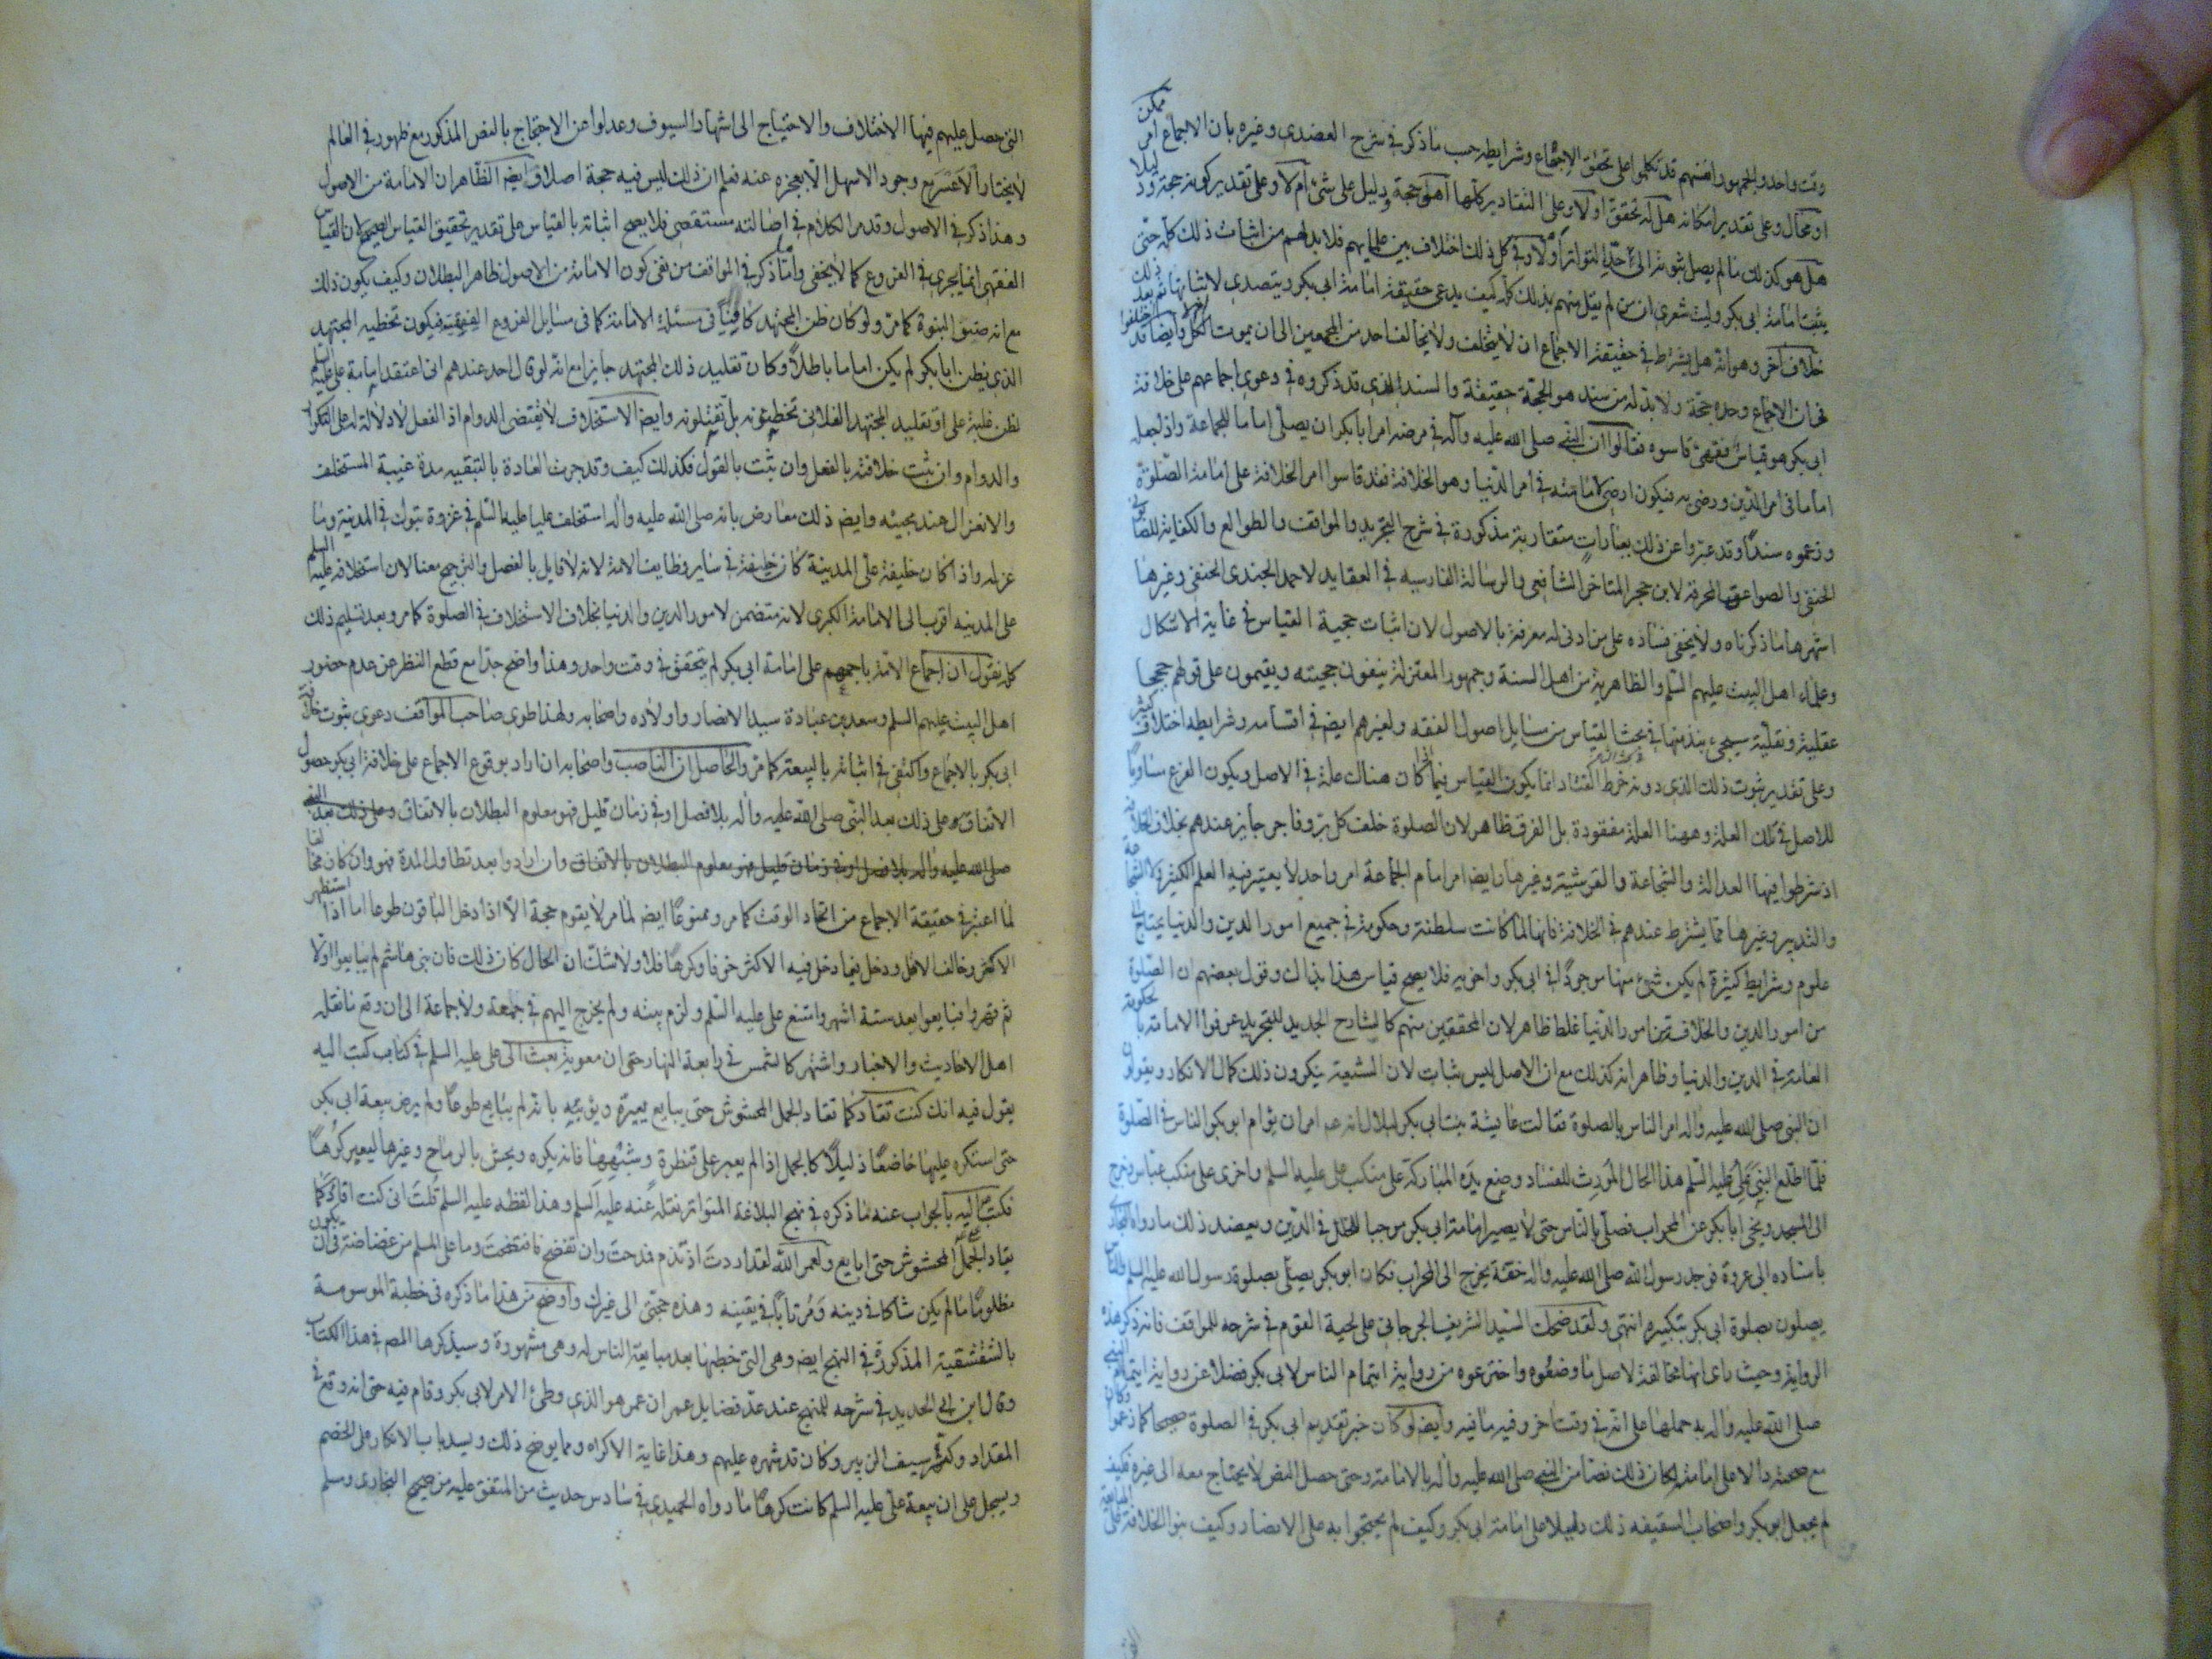 وقت واحد والجمهور انفسهم قد تكلموا على تحقق الاجماع وشرايطه حسب ما ذكر في شرح العضدي وغيره بان الاجماع امر ممكن
او محال وعلى تقدير امكانه هل له تحقق او لا وعلى التقادير كلها اهو حجة ودليل على شئ ام لا وعلى تقدير كونه حجة ودليلا
هل هو كذلك ما لم يصل ثبوته الى حد التواتر او لا وفي كل ذلك اختلاف بين علمائهم فلا بد لهم من اثبات ذلك كله حتى
يثبت امامة ابى بكر وليت شعري ان من لم يقل منهم بذلك كله كيف يدعى حقيقة امامة ابى بكر ويتصدى لاثباتها ثم بعد ذلك
خلاف آخر وهو انه هل يشترط في حقيقة الاجماع ان لا يتخلف ولا يخالف احد من المجمعين الى ان يموت الكل وايضا قد اختلفوا
في ان الاجماع وحده حجة ولا بد له من سند هو الحجة حقيقة والسند الذي قد ذكروه في دعوى اجماعهم على خلافة
ابى بكر هو قياس فقهى قاسوه فقالوا ان النبي صلى الله عليه وآله في مرضه امر ابا بكر ان يصلى اماما للجماعة واذ جعله
اماما في امر الدين ورضى به فيكون ارضى لامامته في امر الدنيا وهو الخلافة فقد قاسوا امر الخلافة على امامة الصلوة
وزعموه سندا وقد عبروا عن ذلك بعبارات متقاربة مذكورة في شرح التجريد والمواقف والطوالع والكفاية للصابوني
الحنفي والصواعق المحرقة لابن حجر المتاخر الشافعي والرسالة الفارسيه في العقايد لاحمد الجندي الحنفي وغيرها
اشهرها ما ذكرناه ولا يخفى فساده على من ادنى له معرفة بالاصول لان اثبات حجية القياس في غاية الاشكال
وعلماء اهل البيت عليهم السلم والظاهرية من اهل السنة وجمهور المعتزلة ينفون حجيته ويقيمون على قولهم حججا
عقلية ونقلية سيجيء نبذ منها في بحث القياس من مسايل اصول الفقه ولغيرهم ايضا في اقسامه وشرايطه اختلاف كثير
وعلى تقدير ثبوت ذلك الذي دونه خرط القتاد انما يكون القياس فيما اذا كان هناك علة في الاصل ويكون الفرع مساويا
للاصل في تلك العلة وههنا العلة مفقودة بل الفرق ظاهر لان الصلوة خلف كل بر وفاجر جايز عندهم بخلاف الخلافة
اذ شرطوا فيها العدالة والشجاعة والقرشية وغيرها وايضا امر امام الجماعة امر واحد لا يعتبر فيه العلم الكثير ولا الشجاعة
والتدبير وغيرها مما يشترط عندهم في الخلافة فانها لما كانت سلطنة وحكومة في جميع امور الدين والدنيا يحتاج الى
علوم وشرايط كثيرة لم يكن شئ منها موجودا في ابى بكر واخويه فلا يصح قياس هذا بذاك وقول بعضهم ان الصلوة
من امور الدين والخلافة من امور الدنيا غلط ظاهر لان المحققين منهم كالشارح الجديد للتجريد عرفوا الامامة بالحكومة
العامة في الدين والدنيا وظاهر انه كذلك مع ان الاصل ليس بثابت لان الشيعة ينكرون ذلك كمال الانكار ويقولون
ان النبي صلى الله عليه وآله امر الناس بالصلوة فقالت عايشة بنت ابى بكر لبلال انه امر ان يؤم ابو بكر الناس في الصلوة
فلما اطلع النبي عليه السلم هذا الحال المورث للفساد وضع يده المباركة على منكب على عليه السلم واخرى على منكب عباس وخرج
الى المسجد ونحى ابا بكر عن المحراب فصلى بالناس حتى لا يصير امامة ابى بكر موجبا للخلل في الدين ويعضد ذلك ما رواه البخاري
باسناده الى عروة فوجد رسول الله صلى الله عليه وآله خفة يخرج الى المحراب فكان ابو بكر يصلى بصلوة رسول الله عليه السلم والناس
يصلون بصلوة ابى بكر بتكبيره انتهى ولقد ضحك السيد الشريف الجرجاني على لحية القوم في شرحه للمواقف فانه ذكر هذه
الرواية وحيث رأى انها مخالفة لاصل ما وضعوه واخترعوه من رواية ايتمام الناس لابى بكر فضلا عن رواية ايتمام النبي
صلى الله عليه وآله به حملها على انه في وقت آخر وفيه ما فيه وايضا لو كان خبر تقديم ابى بكر في الصلوة صحيحا كما زعموا وكان
مع صحته دالا على امامته لكان ذلك نصا من النبي صلى الله عليه وآله بالامامة وحتى حصل النص لا يحتاج معه الى غيره فكيف
لم يجعل ابو بكر واصحاب السقيفه ذلك دليلا على امامة ابى بكر وكيف لم يحتجوا به على الانصار وكيف بنوا الخلافة على المبايعة
التي حصل عليهم فيها الاختلاف والاحتياج الى اشهار السيوف وعدلوا عن الاحتجاج بالنص المذكور مع ظهور في العالم
لا يختار الاعسر مع وجود الاسهل الا لعجزه عنه فعلم ان ذلك ليس فيه حجة اصلا وايضا الظاهر ان الامامة من الاصول
وهذا ذكر في الاصول وقد مر الكلام في اصالته مستقصى فلا يصح اثباته بالقياس على تقدير تحقيق القياس الصحيح لان القياس
الفقهى انما يجري في الفروع كما لا يخفى وأما ذكر في المواقف من نفى كون الامامة من الاصول ظاهر البطلان وكيف يكون ذلك
مع انه صنو النبوة كما مر ولو كان ظن المجتهد كافيا في مسئلة الامامة كما في مسايل الفروع الفقهية فيكون تخطيه المجتهد
الذي يظن ابا بكر لم يكن اماما باطلا وكان تقليد ذلك المجتهد جايزا مع انه لو قال احد عندهم انى اعتقد امامة على عليه السلم
لظن غلبه على او تقليد المجتهد الفلاني تخطئونه بل تقتلونه وايضا الاستخلاف لا يقتضى الدوام اذ الفعل لا دلالة له على التكرار
والدوام وان ثبت خلافته بالفعل وان ثبت بالقول فكذلك كيف وقد جرت العادة بالتبقيه مدة غيبة المستخلف
والانعزال عند مجيئه وايضا ذلك معارض بانه صلى الله عليه وآله استخلف عليا عليه السلم في غزوة تبوك في المدينة وما
عزله واذا كان خليفة على المدينة كان خليفة في ساير وظايف الامة لانه لا قايل بالفصل والترجيح معنا لان استخلافه عليه السلم
على المدينه اقرب الى الامامة الكبرى لانه متضمن لامور الدين والدنيا بخلاف الاستخلاف في الصلوة كما مر وبعد تسليم ذلك
كله نقول ان اجماع الامة باجمعهم على امامة ابى بكر لم يتحقق في وقت واحد وهذا واضح جدا مع قطع النظر عن عدم حضور
اهل البيت عليهم السلم وسعد بن عبادة سيد الانصار واولاده واصحابه ولهذا طوى صاحب المواقف دعوى ثبوت خلافة
ابى بكر بالاجماع واكتفى في اثباته بالبيعة كما مر والحاصل ان الناصب واصحابه ان اراد بوقوع الاجماع على خلافة ابى بكر حصول
الاتفاق على ذلك بعد النبي صلى الله عليه وآله بلا فصل او في زمان قليل فهو معلوم البطلان بالاتفاق وعلى ذلك بعد النبي
صلى الله عليه وآله بلا فصل او في زمان قليل فهو معلوم البطلان بالاتفاق وان ارادوا بعد تطاول المدة فهو وان كان مخالفا
لما اعتبر في حقيقة الاجماع من اتحاد الوقت كما مر وممنوعا ايضا لما مر لا يقوم حجة الا اذا دخل الباقون طوعا اما اذا استظهر
الاكثر وخالف الاقل ودخل فيما دخل فيه الاكثر خوفا وكرها فلا ولا شك ان الحال كان ذلك فان بنى هاشم لم يبايعوا اولا
ثم قهروا فبايعوا بعد ستة اشهر وامتنع على عليه السلم ولزم بيته ولم يخرج اليهم في جمعة ولا جماعة الى ان وقع ما نقله
اهل الاحاديث والاخبار واشتهر كالشمس في رابعة النهار حتى ان معوية بعث الى على عليه السلم في كتاب كتب اليه
يقول فيه انك كنت تقاد كما تقاد الجمل المخشوش حتى يبايع يعيره ويؤنبه بانه لم يبايع طوعا ولم يرض ببيعة ابى بكر
حتى استكره عليها خاضعا ذليلا كالجمل اذا لم يعبر على قنطرة وشبهها فانه يكره ويخش بالرماح وغيرها ليعبر كرها
فكتب اليه بالجواب عنه ما ذكره في نهج البلاغة المتواتر نقله عنه عليه السلم وهذا لفظه عليه السلم قلت انى كنت اقاد كما
يقاد الجمل المخشوش حتى ابايع ولعمر الله لقد اردت ان تذم فمدحت وان تفضح فافتضحت وما على المسلم من غضاضة في ان يكون
مظلوما ما لم يكن شاكا في دينه ومرتابا في يقينه وهذه حجتي الى غيرك وأوضح من هذا ما ذكره في خطبة الموسومة
بالشقشقية المذكورة في النهج ايضا وهي التي خطبها بعد مبايعة الناس له وهي مشهورة وسيذكرها المص في هذا الكتاب
وقال ابن ابى الحديد في شرحه للنهج عند عد فضايل عمر ان عمر هو الذي وطئ الامر لابى بكر وقام فيه حتى انه وقع في
المقداد وكسر سيف الزبير وكان قد شهره عليهم وهذا غاية الاكراه ومما يوضح ذلك ويسد باب الانكار على الخصم
ويسجل على ان بيعة على عليه السلم كانت كرها ما رواه الحميدي في سادس حديث من المتفق عليه من صحيح البخاري ومسلم